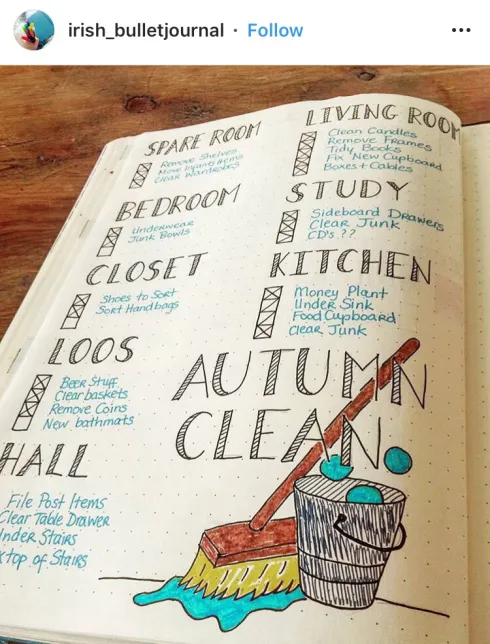 irish_bulletjournal · Follow
SPARE ROOM
Remove Shelves
Move Items
Clear Wardrobes
BEDROOM
Underwear
Junk Bowls
CLOSET
Shoes to Sort
Sort Handbags
LOOS
Beer Stuff
Clear baskets
Remove Coins
New bathmats
HALL
File Post Items
Clear Table Drawer
nder Stairs
top of Stairs
LIVING ROOM
Clean Candles
Remove Frames
Tidy Books
Fix New Cupboard
Boxes + Cables
STUDY
Sideboard Drawers
Clear Junk
CD's ??
KITCHEN
Money Plant
Under Sink
Food Cupboard
Clear Junk
AUTUMN
CLEAN.